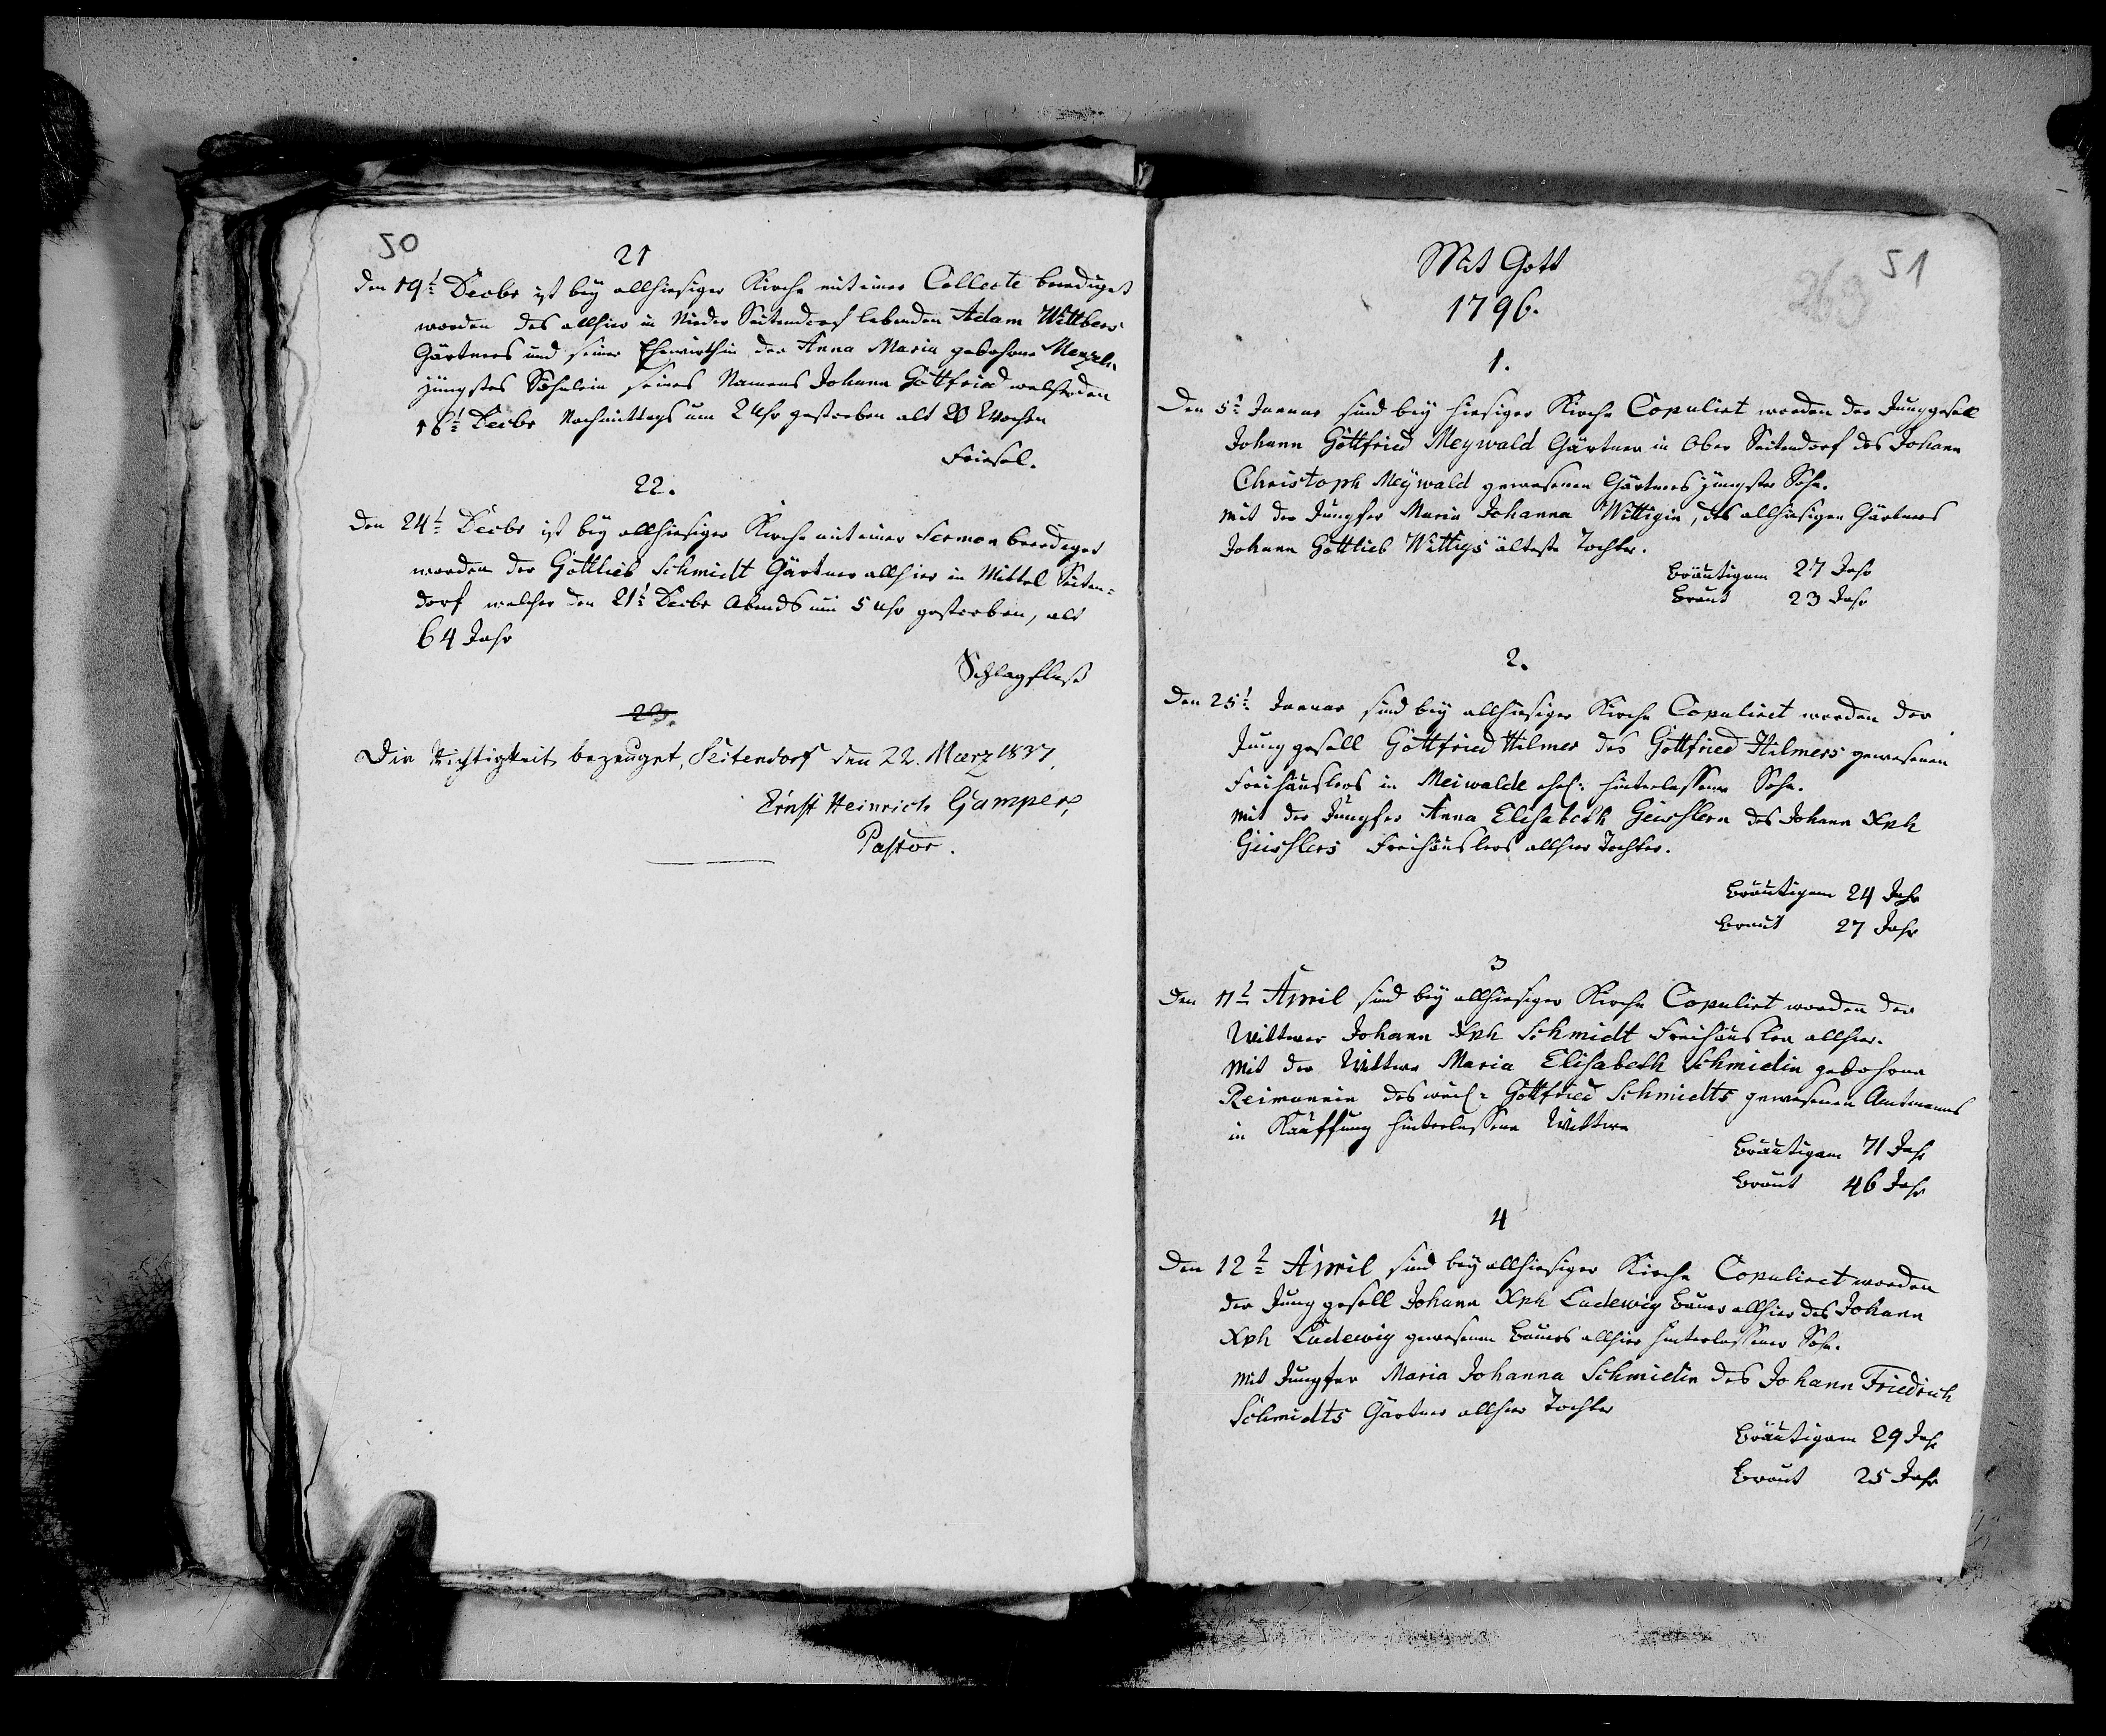 50
21
den 19t Decbr ist bey allhiesiger Kirche mit einer Collecte beerdiget
worden des allhier in Nieder Seitendorf lebenden Adam Wittbers
Gärtners und seiner Ehewirthin der Anna Maria gebohrne Menzeln
jüngstes Söhnlein seines Namens Johann Gottfried welcher den
16t Decbr Nachmittags um 2 Uhr gestorben alt 20 Wochen
Friesel.
22.
den 24t Decbr ist bey allhiesiger Kirche mit einer Sermon beerdiget
worden der Gottlieb Schmidt Gärtner allhier in Mittel Seiten=
dorf welcher den 21t Decbr Abends um 5 Uhr gestorben, alt
64 Jahr
Schlagfluß
23.
Die Richtigkeit bezeuget, Seitendorf den 22. Maerz 1837.
Ernst Heinrich Gamper,
Pastor.
51
263
Mit Gott
1796.
1.
Den 5t Januar sind bey hiesiger Kirche Copuliet worden der Junggesell
Johann Gottfried Meywald Gärtner in Ober Seitendorf des Johann
Christoph Meywald gewesenen Gärtners jüngster Sohn.
mit der Jungfer Maria Johanna Wittigin, des allhiesigen Gärtners
Johann Gottlieb Wittigs älteste Tochter.
Bräutigam 27 Jahr
Braut 23 Jahr
2.
Den 25t Januar sind bey allhiesiger Kirche Copuliret worden der
Jung gesell Gottfried Hilmer des Gottfried Hilmers gewesenen
Freihäuslers in Meiwalde ehel: hinterlassener Sohn.
mit der Jungfer Anna Elisabeth Geisslern des Johann Xph
Geisslers Freihäuslers allhier Tochter.
Bräutigam 24 Jahr
Braut 27 Jahr
3
Den 11t April sind bey allhiesiger Kirche Copuliet worden der
Wittwer Johann Xph Schmidt Freihäusler allhier.
mit der Wittwe Maria Elisabeth Schmidin gebohrne
Reimannin des weil: Gottfried Schmidts gewesenen Amtmanns
in Kauffung hinterlassene Wittwe
Bräutigam 71 Jahr
Braut 46 Jahr
4
Den 12t April sind bey allhiesiger Kirche Copuliret worden
der Jung gesell Johann Xph Ludewig Bauer allhier des Johann
Xph Ludewig gewesenen Bauers allhier hinterlassener Sohn.
mit Jungfer Maria Johanna Schmidin des Johann Friedrich
Schmidts Gärtner allhier Tochter
Bräutigam 29 Jahr
Braut 25 Jahr